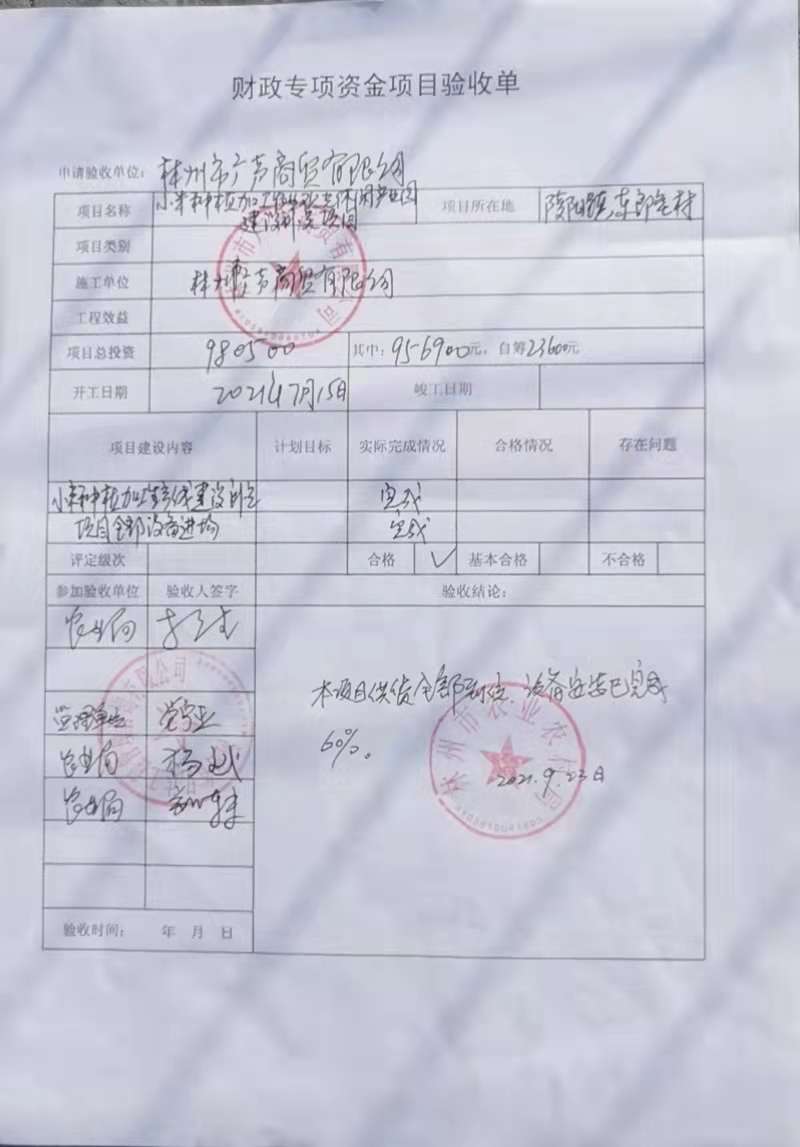 财政专项资金项目验收单
申请验收单位：林州市广芦商贸有限公司
项目名称 小米种植加工 休闲产业园 项目所在地 陵阳镇东郎宅村
建设 项目
项目类别
施工单位 林州 广芦商贸有限公司
工程效益
项目总投资 980500 其中：956900元，自筹23600元
开工日期 2021年7月15日 竣工日期
项目建设内容 计划目标 实际完成情况 合格情况 存在问题
小米种植加工 建设 完成
项目全部设备进场 完成
评定级次 合格 ✓ 基本合格 不合格
参加验收单位 验收人签字 验收结论：
农业局
本项目供货全部到位，设备安装已完成
监理单位
60%。
农业局 杨
2021.9.23日
农业局
验收时间： 年 月 日
林州市农业农